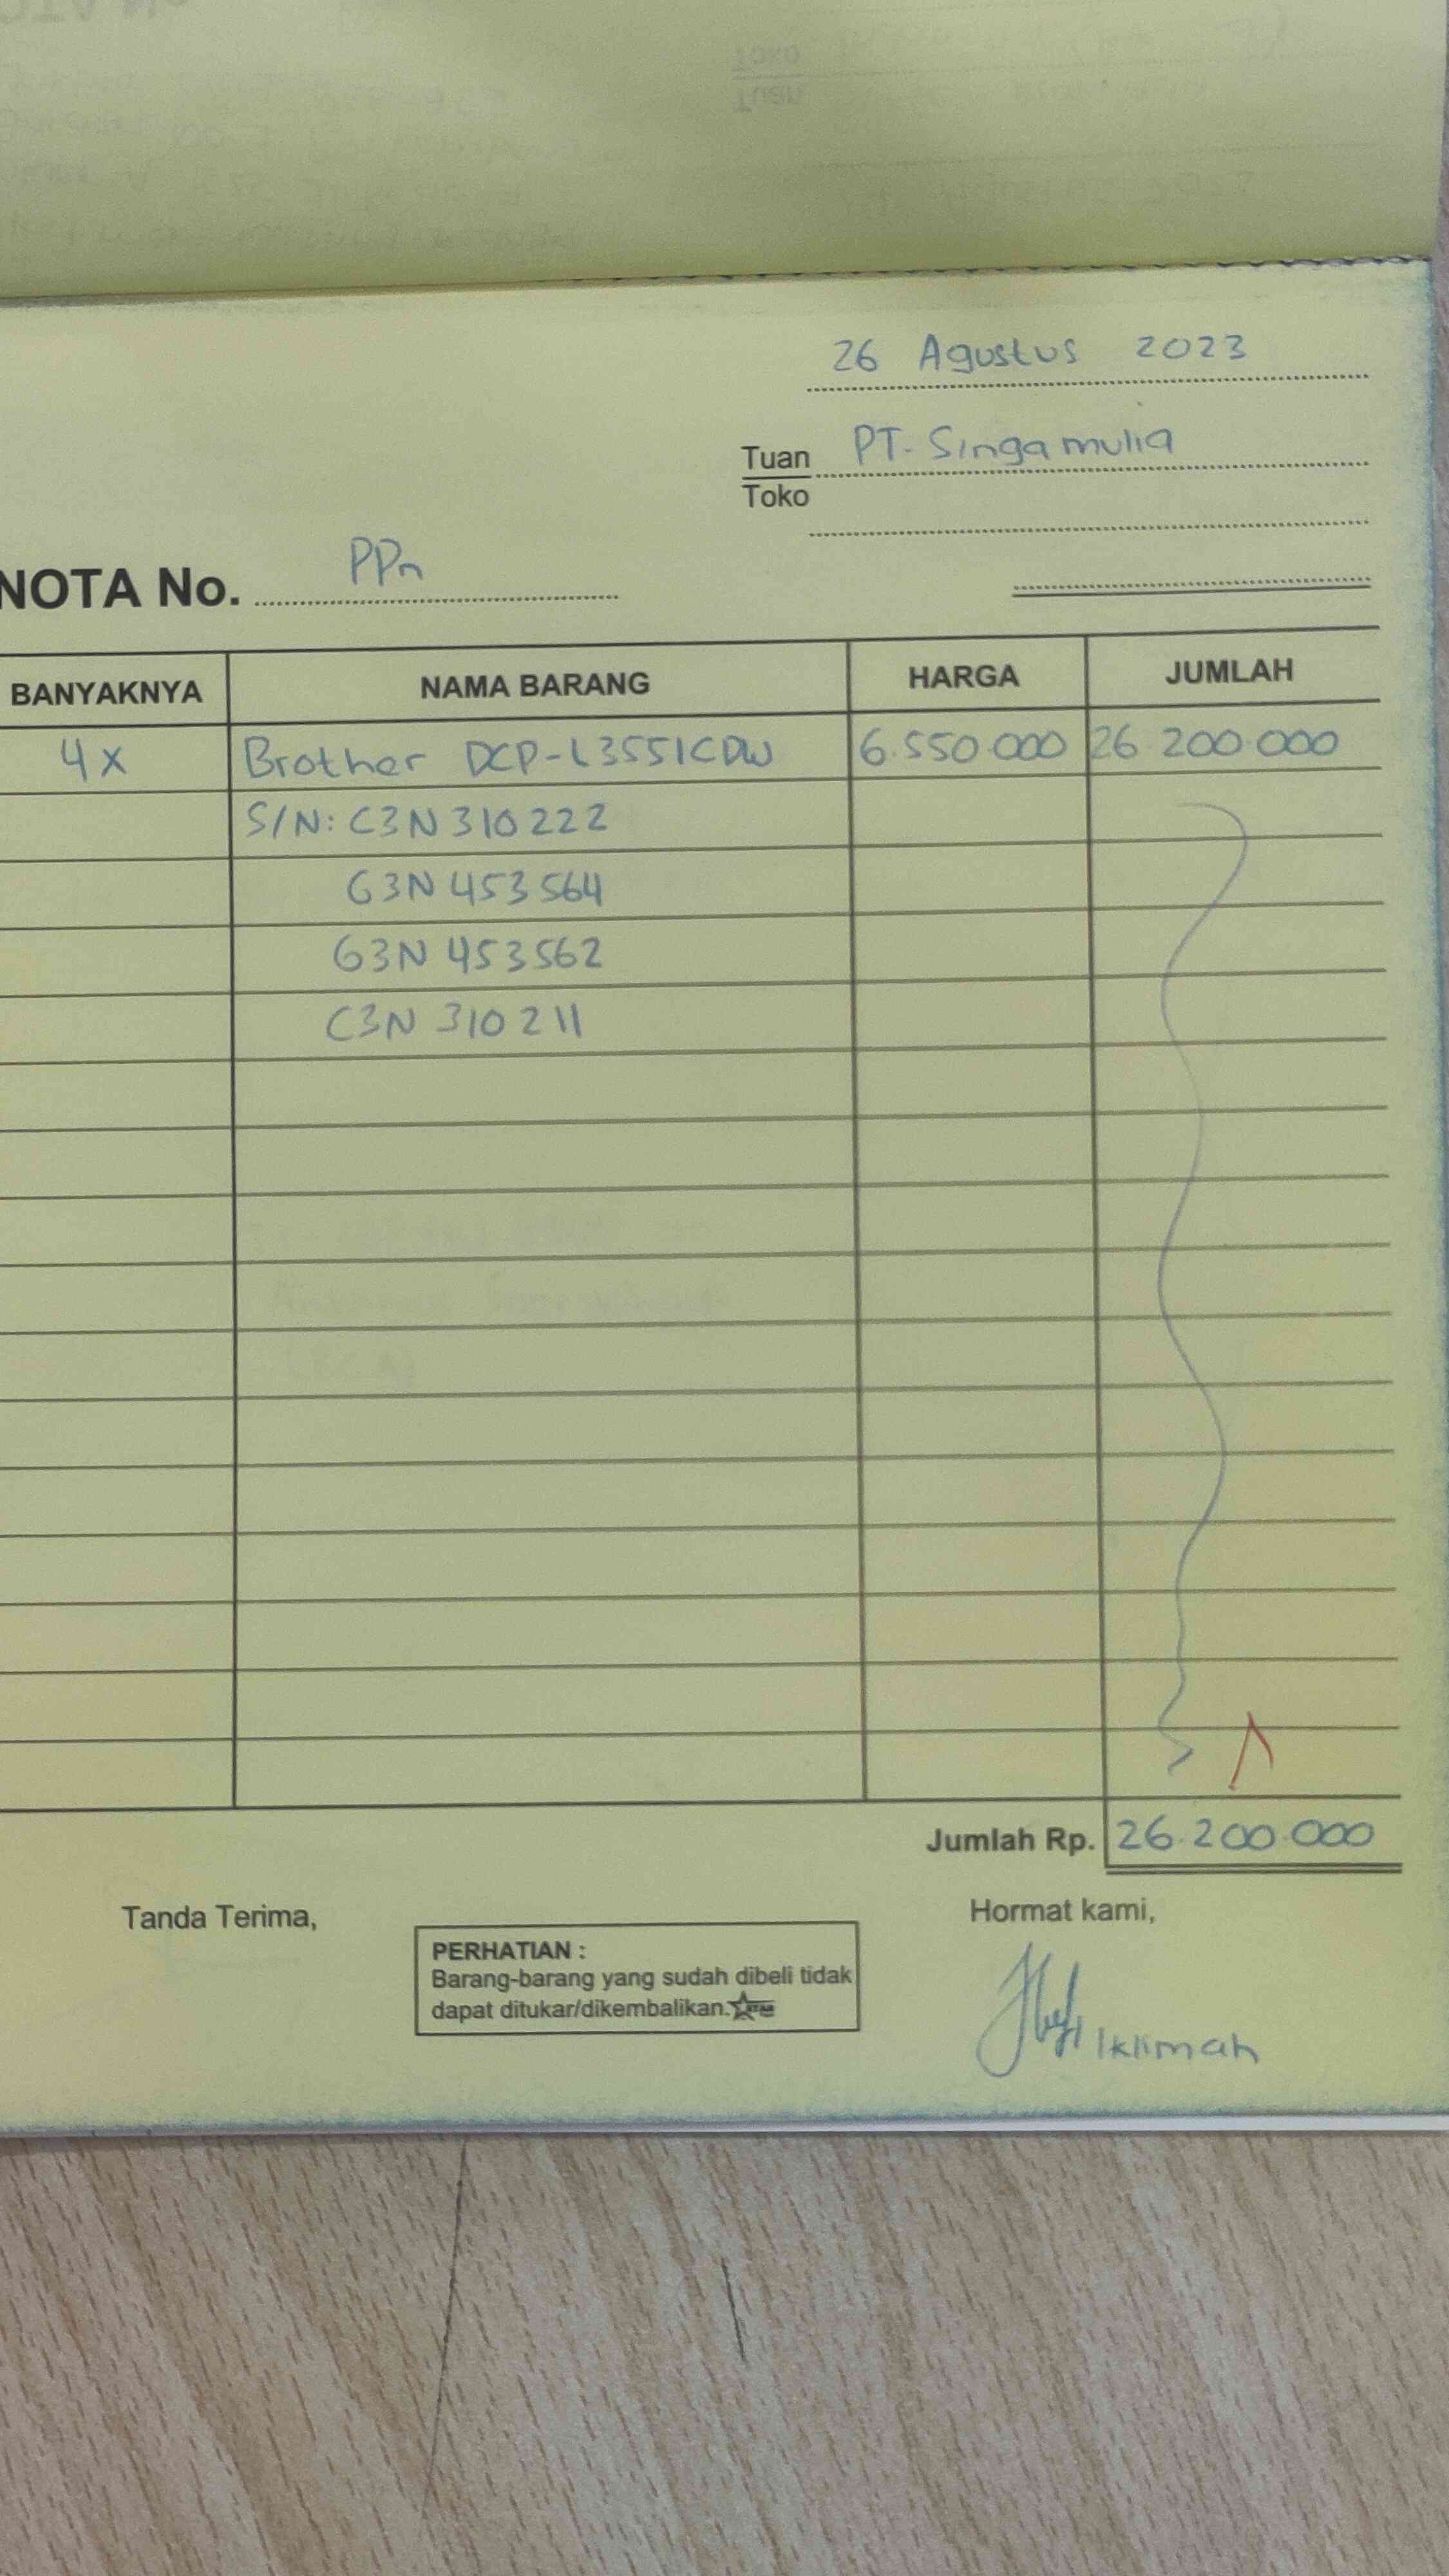 26 Agustus 2023
Tuan PT. Singamulia
Toko
NOTA No. PPn
BANYAKNYA NAMA BARANG HARGA JUMLAH
4x Brother DCP-L3551CDW 6.550.000 26.200.000
S/N: C3N310222
G3N453564
G3N453562
C3N310211
Jumlah Rp. 26.200.000
Tanda Terima,
Hormat kami,
PERHATIAN :
Barang-barang yang sudah dibeli tidak
dapat ditukar/dikembalikan.
Iklimah